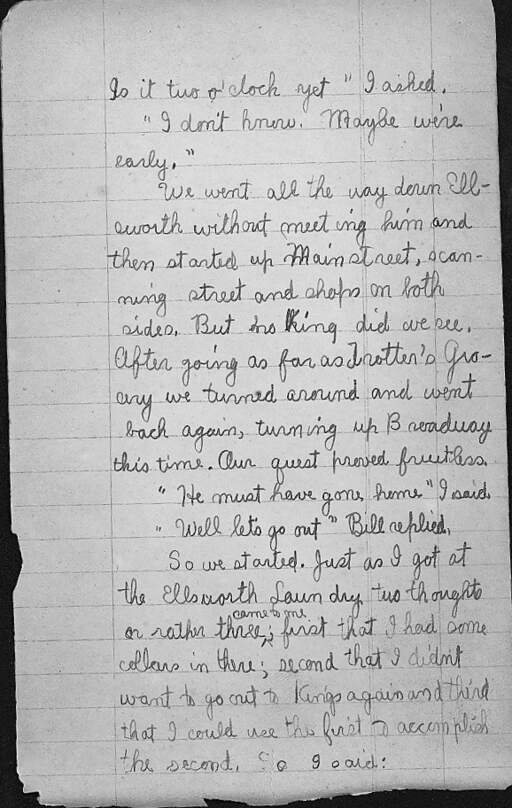 Is it two o'clock yet" I asked.
"I don't know. Maybe we're
early."
We went all the way down Ell-
sworth without meeting him and
then started up Main street, scan-
ning street and shops on both
sides. But no King did we see.
After going as far as Trotter's Gro-
cery we turned around and went
back again, turning up Broadway
this time. Our quest proved fruitless.
"He must have gone home" I said.
"Well let's go out" Bill replied.
So we started. Just as I got at
the Ellsworth Laundry two thoughts
came to me
or rather three; first that I had some
collars in there; second that I didn't
want to go out to Kings again and third
that I could use the first to accomplish
the second. So I said: